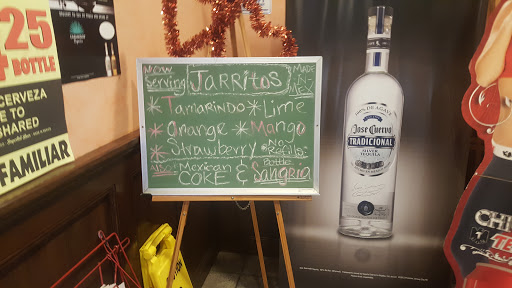 25
BOTTLE
CERVEZA
E TO
SHARED
FAMILIAR
NOW
Serving
JARRITOS
MADE
IN
MEX
* TAMARINDO * Lime
* Orange * Mango
* Strawberry
"No
Refills"
ALSO
Mexican
Bottle
COKE & Sangria
100% DE AGAVE
Jose Cuervo
TRADICIONAL
SILVER
TEQUILA
CHI
TE